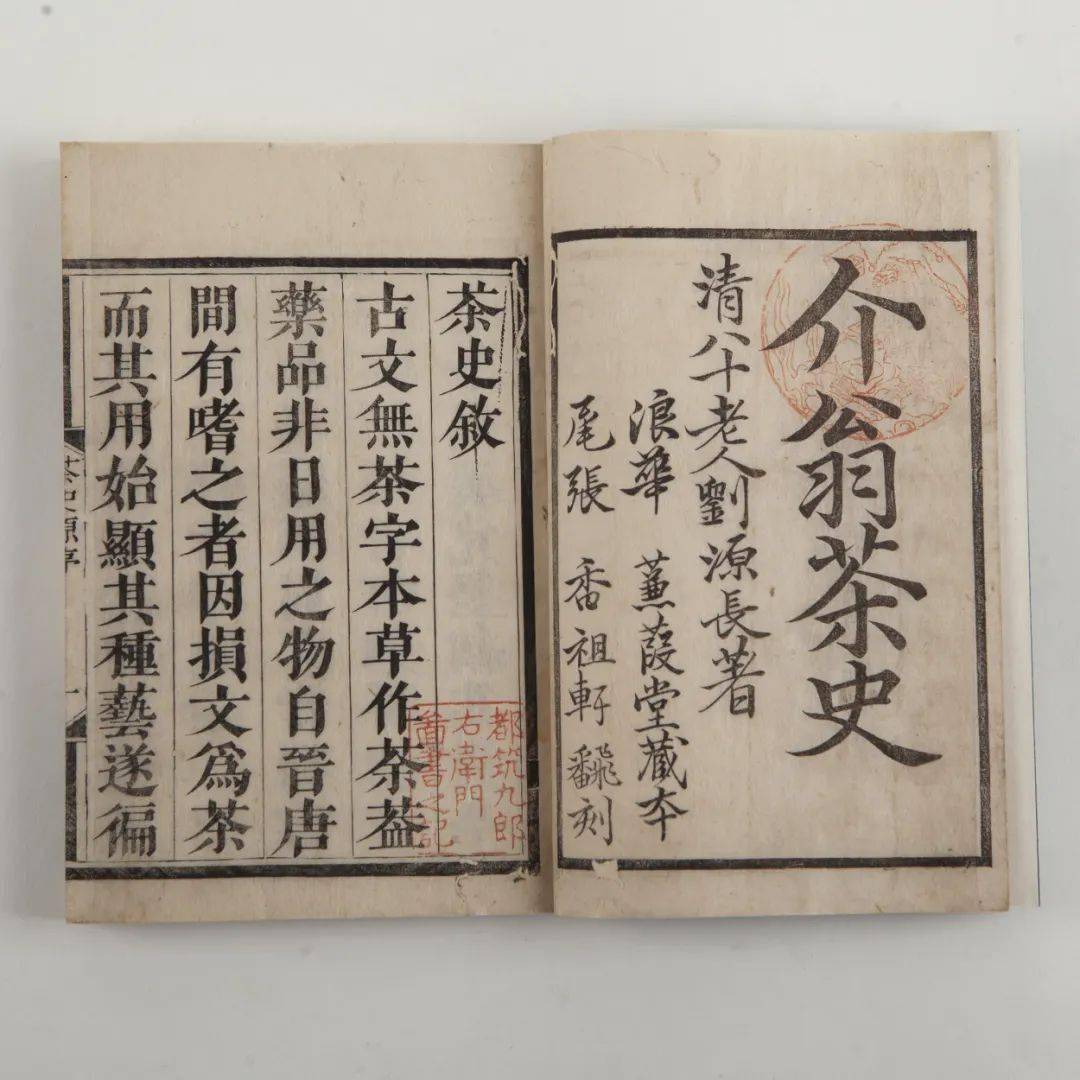 介翁茶史
清八十老人劉源長著
浪華 蒹葭堂藏本
尾張 香祖軒翻刻
茶史敘
古文無茶字本草作荼葢
藥品非日用之物自晉唐
間有嗜之者因損文爲茶
而其用始顯其種藝遂徧
都筑九郎
右衛門
啚書之記
茶史原序